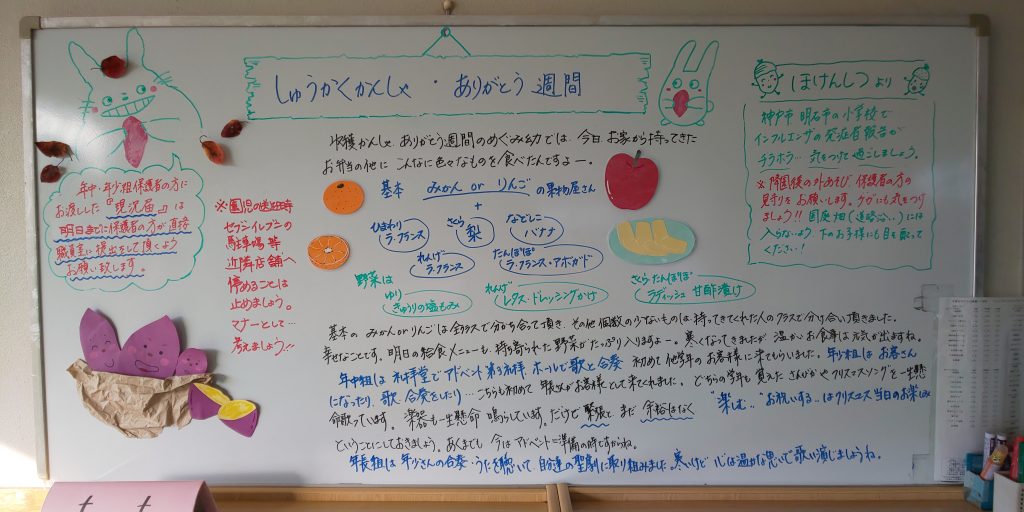 しゅうかくかんしゃ・ありがとう週間
収穫かんしゃ ありがとう週間のめぐみ幼では、今日 お家から持ってきた
お弁当の他に こんなに色々なものを食べたんですよー。
基本 みかん or りんご の果物屋さん
+
ひまわり
ラ・フランス
さくら
梨
なでしこ
バナナ
れんげ
ラ・フランス
たんぽぽ
ラ・フランス・アボガド
野菜は
ゆり
きゅうりの塩もみ
れんげ
レタス・ドレッシングかけ
さくら たんぽぽ
ラディッシュ 甘酢漬け
基本の みかんorりんごは全クラスで分かち合って頂き、その他個数の少ないものは、持ってきてくれた人のクラスで分け合い頂きました。
幸せなことです。明日の給食メニューも、持ち寄られた野菜がたっぷり入りますよー。寒くなってきましたが 温かいお食事は元気が出ますね。
年中組は 礼拝堂でアドベント第3礼拝 ホールで歌と合奏 初めて他学年のお客様に来てもらいました。年少組は お客さん
になったり、歌、合奏をしたり…こちらも初めて 年長さんがお客様として来てくれました。どちらの学年も 覚えた さんびかや クリスマスソングを一生懸
命歌っています。楽器も一生懸命 鳴らしています。だけど 緊張で まだ 余裕はなく
"楽しむ…""お祝いする…"はクリスマス当日のお楽しみ
ということにしておきましょう。あくまでも 今はアドベント=準備の時ですからね。
年長組は 年少さんの合奏・うたを聴いて 自分達の聖劇に取り組みました。寒いけど 心は温かな思いで 歌い演じましょうね。
年中・年少組保護者の方に
お渡しした『現況届』は
明日までに保護者の方が直接
職員室に提出をして頂くよう
お願い致します。
※園児の送迎時
セブンイレブンの
駐車場等
近隣店舗へ
停めることは
止めましょう。
マナーとして…
考えましょう!!
ほけんしつより
神戸市 明石市の小学校で
インフルエンザの発症者報告が
チラホラ… 気をつけて過ごしましょう。
※降園後の外あそび、保護者の方の
見守りをお願いします。ケガにも気をつけ
ましょう!! 園庭畑(道路沿い)には
入らないよう 下のお子様にも目を配って
ください!